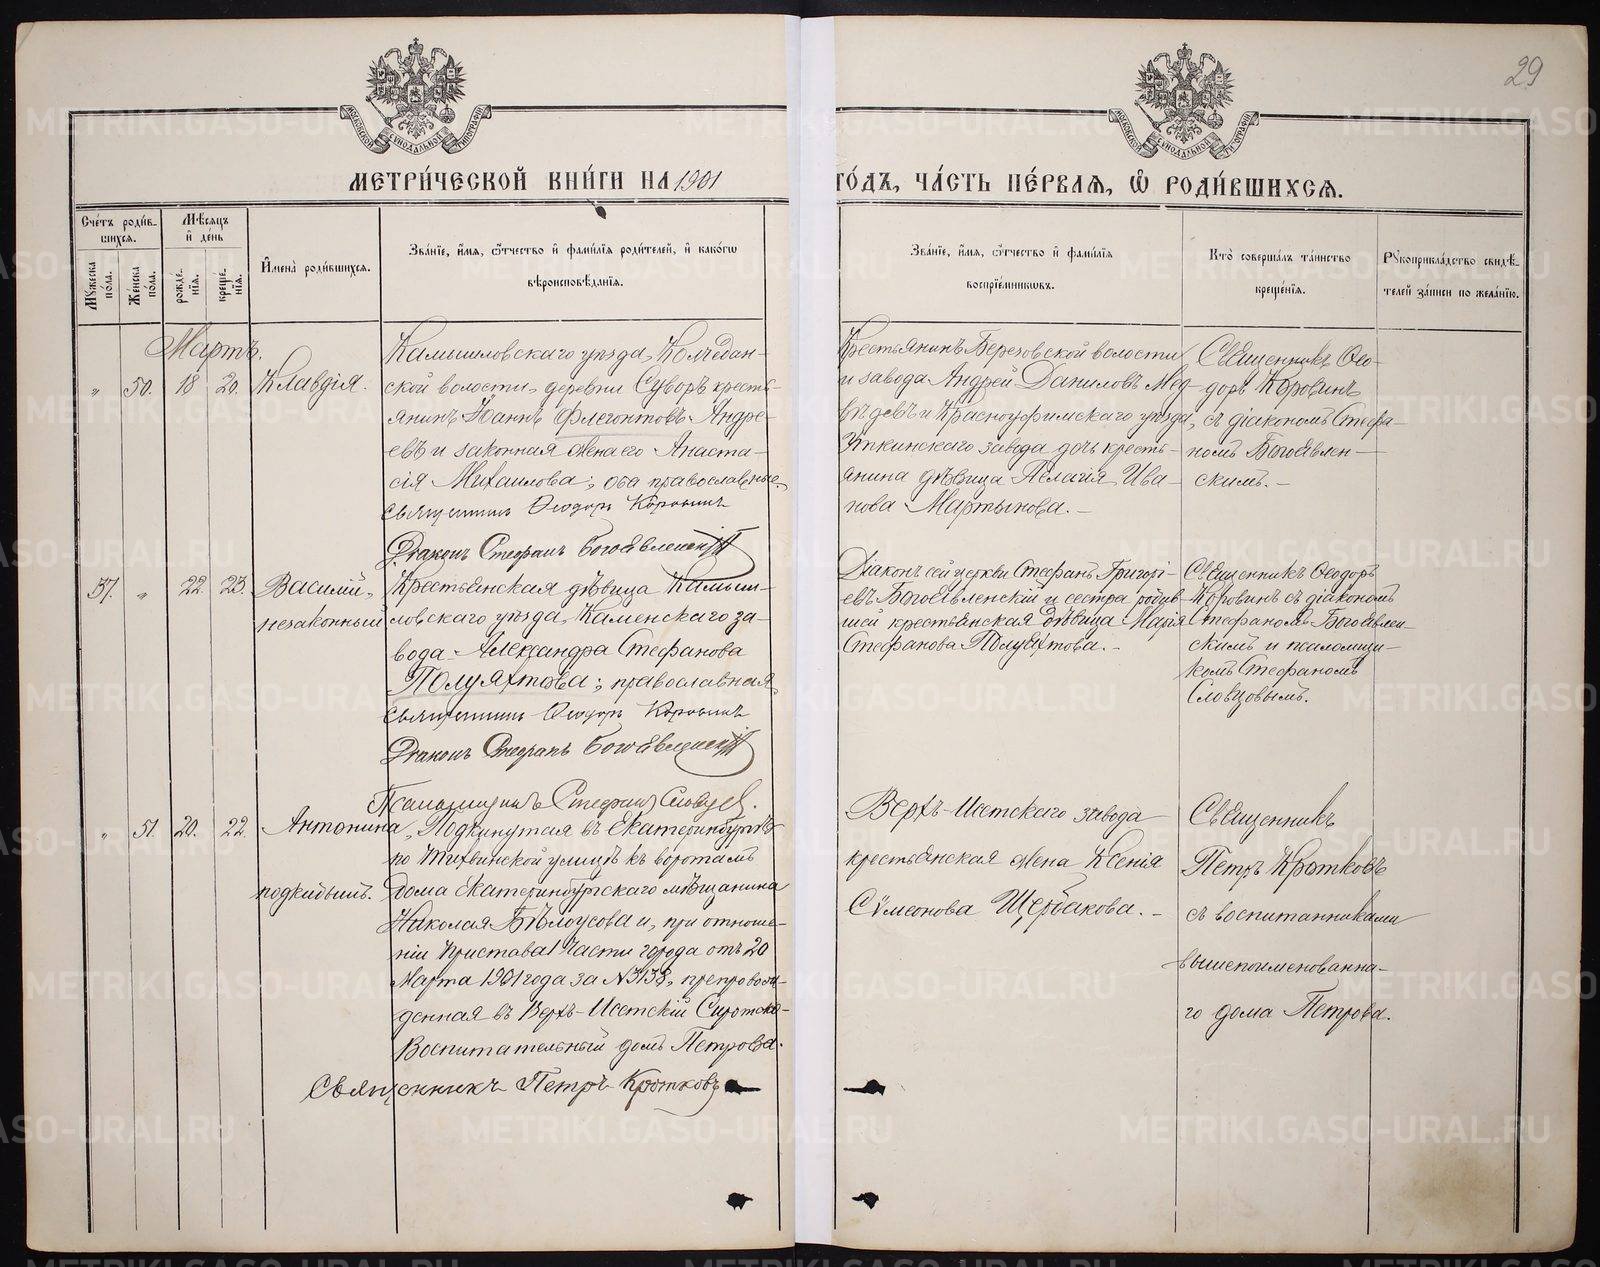 29
МОСКОВСКОЙ СѴНОДАЛЬНОЙ ТИПОГРАФІИ
МОСКОВСКОЙ СѴНОДАЛЬНОЙ ТИПОГРАФІИ
МЕТРИ́ЧЕСКОЙ КНИ́ГИ НА 1901
ГО́ДЪ, ЧА́СТЬ ПЕ́РВАѦ, Ѡ҆ РОДИ́ВШИХСѦ.
Сче́тъ роди́в-
шихся.
Мѣ́сяцъ
и҆ де́нь
Мꙋ́жеска
по́ла.
Же́нска
по́ла.
рожде́-
нїя.
креще́-
нїя.
И҆мена̀ роди́вшихся.
Зва́нїе, и҆́мя, ѻ҆́тчество и҆ фами́лїя роди́телей, и҆ како́гѡ
вѣроисповѣ́данїя.
Зва́нїе, и҆́мя, ѻ҆́тчество и҆ фами́лїя
воспрїе́мниковъ.
Кто̀ соверша́лъ та́инство
креще́нїя.
Рꙋкоприкла́дство свидѣ́-
телей за́писи по жела́нїю.
Мартъ.
" 50. 18 20. Клавдія.
Камышловскаго уѣзда, Колчедан-
ской волости, деревни Суворъ кресть-
янинъ Іоаннъ Флегонтовъ Андре-
евъ и законная жена его Анаста-
сія Михаилова; оба православные.
Священникъ Ѳеодоръ Коровинъ
Діаконъ Стефанъ Богоявленскій
Крестьянинъ Березовской волости
и завода Андрей Даниловъ Мед-
вѣдевъ и Красноуфимскаго уѣзда,
Уткинскаго завода дочь кресть-
янина дѣвица Пелагія Ива-
нова Мартынова.-
Священникъ Ѳео-
доръ Коровинъ
съ діакономъ Стефа-
номъ Богоявлен-
скимъ.-
57. " 22. 23. Василій,
незаконный
Крестьянская дѣвица Камыш-
ловскаго уѣзда, Каменскаго за-
вода Александра Стефанова
Полуяхтова; православная,
Священникъ Ѳеодоръ Коровинъ
Діаконъ Стефанъ Богоявленскій
Псаломщикъ Стефанъ Словцов.
Діаконъ сей церкви Стефанъ Григорі-
евъ Богоявленскій и сестра родив-
шей крестьянская дѣвица Марія
Стефанова Полуяхтова.-
Священникъ Ѳеодоръ
Коровинъ съ діакономъ
Стефаномъ Богоявлен-
скимъ и псаломщи-
комъ Стефаномъ
Словцовымъ.
" 51. 20. 22. Антонина,
подкидышъ.
Подкинутая въ Екатеринбургѣ
по Тихвинской улицѣ къ воротамъ
дома Екатеринбургскаго мѣщанина
Николая Бѣлоусова и, при отноше-
ніи Пристава 1 части города отъ 20
Марта 1901 года за №3133, препровож-
денная въ Верхъ-Исетскій Сиротско-
Воспитательный домъ Петрова.
Священникъ Петръ Кротковъ
Верхъ-Исетскаго завода
крестьянская жена Ксенія
Сѵмеонова Щербакова.-
Священникъ
Петръ Кротковъ
съ воспитанниками
вышепоименованна-
го дома Петрова.